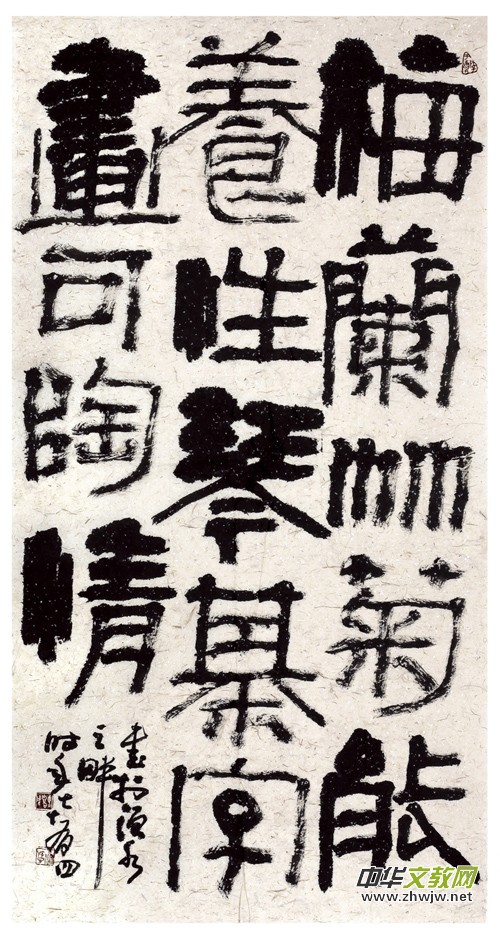 梅蘭竹菊能
養性琴棊字
畫可陶情
書於水
之畔
时年七十有四
中华文教网
www.zhwjw.net